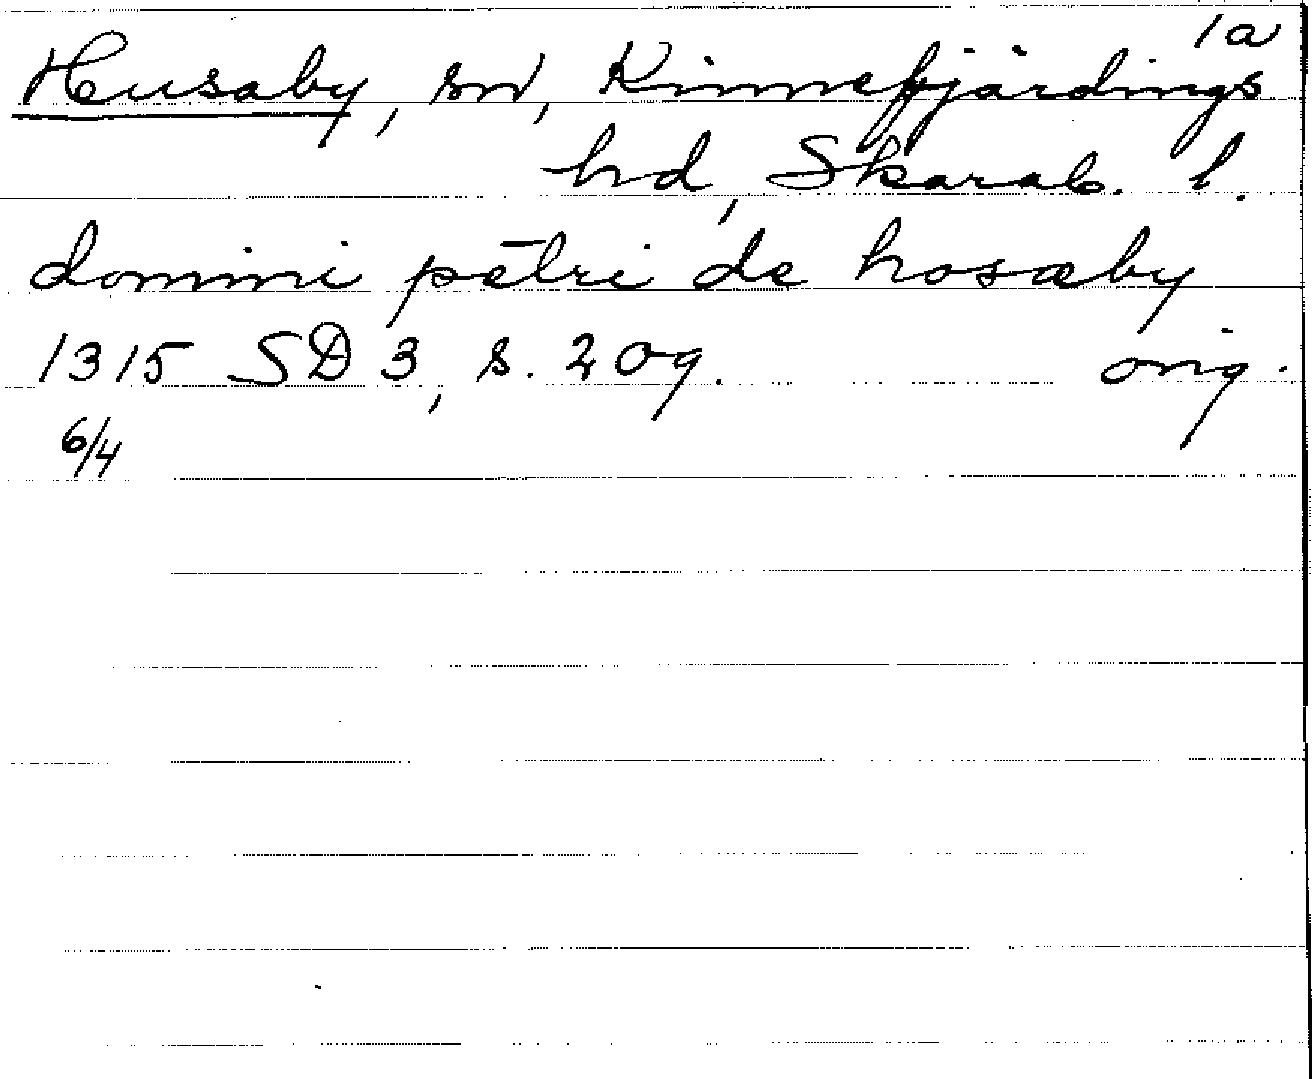 1a
Husaby, sn, Kinnefjärdings
hd, Skarab. l.
domini pētri de hosæby
1315 SD 3, s. 209. orig.
6/4